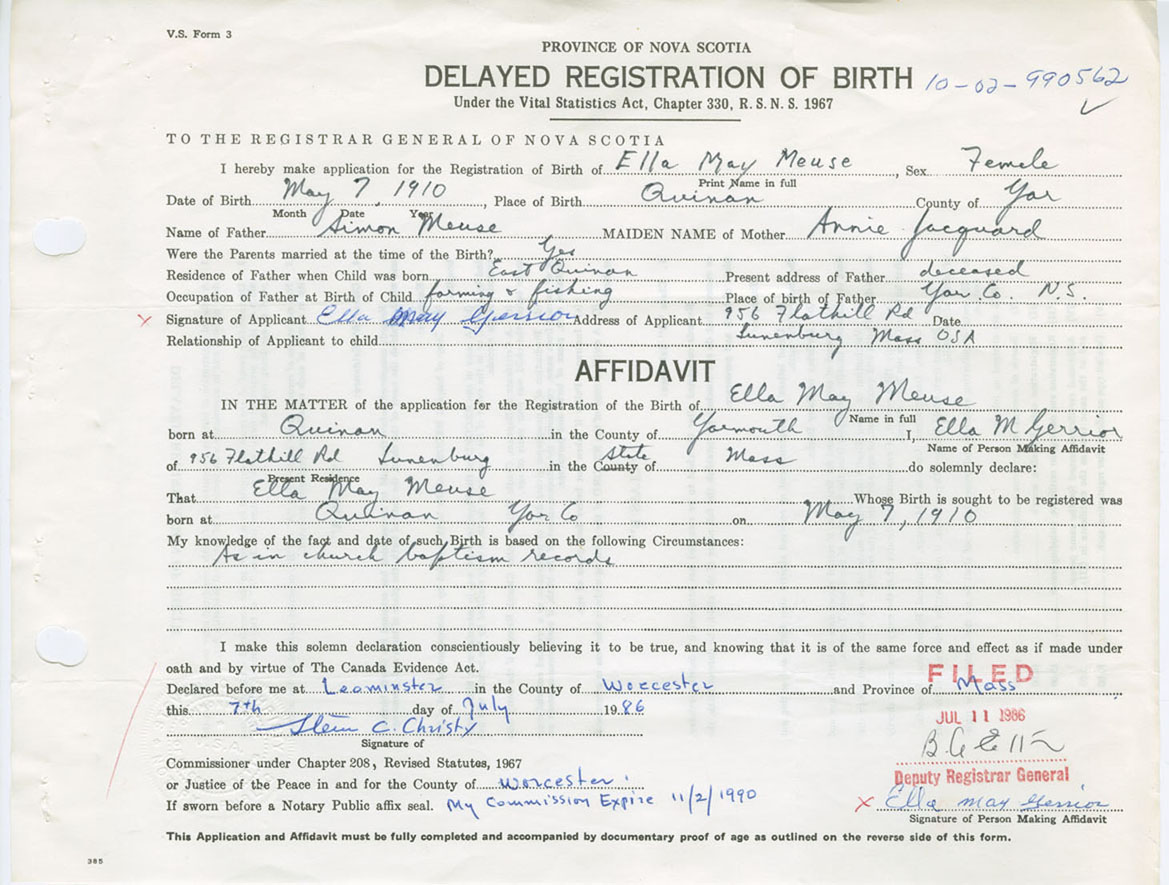 V.S. Form 3
PROVINCE OF NOVA SCOTIA
DELAYED REGISTRATION OF BIRTH 10-02-990562
Under the Vital Statistics Act, Chapter 330, R. S. N. S. 1967
TO THE REGISTRAR GENERAL OF NOVA SCOTIA
I hereby make application for the Registration of Birth of Ella May Meuse, Sex Female
Print Name in full
Date of Birth May 7, 1910, Place of Birth Quinan County of Yar
Month Date Year
Name of Father Simon Meuse MAIDEN NAME of Mother Annie Jacquard
Were the Parents married at the time of the Birth? Yes
Residence of Father when Child was born East Quinan Present address of Father deceased
Occupation of Father at Birth of Child farming & fishing Place of birth of Father Yar Co. N.S.
x Signature of Applicant Ella May Gerrior Address of Applicant 956 Flathill Rd Date
Relationship of Applicant to child Lunenburg Mass USA
AFFIDAVIT
IN THE MATTER of the application for the Registration of the Birth of Ella May Meuse
Name in full
born at Quinan in the County of Yarmouth I, Ella M Gerrior
Name of Person Making Affidavit
of 956 Flathill Rd Lunenburg in the County of State Mass do solemnly declare:
Present Residence
That Ella May Meuse Whose Birth is sought to be registered was
born at Quinan Yar Co on May 7, 1910
My knowledge of the fact and date of such Birth is based on the following Circumstances:
As in church baptism records
I make this solemn declaration conscientiously believing it to be true, and knowing that it is of the same force and effect as if made under
oath and by virtue of The Canada Evidence Act.
FILED
Declared before me at Leominster in the County of Worcester and Province of Mass
this 7th day of July 1986
JUL 11 1986
C. Christy
Signature of
Commissioner under Chapter 208, Revised Statutes, 1967
Deputy Registrar General
or Justice of the Peace in and for the County of Worcester.
x Ella May Gerrior
If sworn before a Notary Public affix seal. My Commission Expire 11/2/1990
Signature of Person Making Affidavit
This Application and Affidavit must be fully completed and accompanied by documentary proof of age as outlined on the reverse side of this form.
385